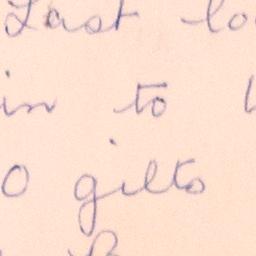 Last lo
in to
0 gilts